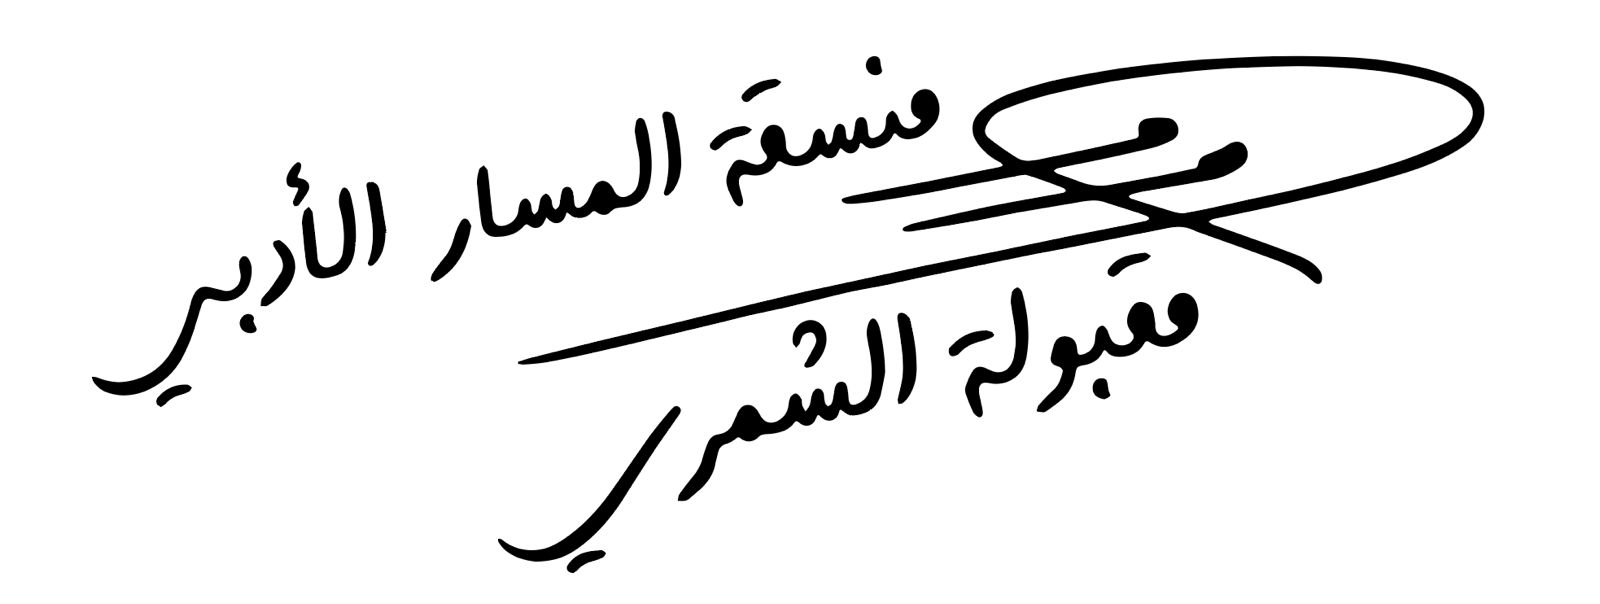 منسقة المسار الأدبي
مقبولة الشمري